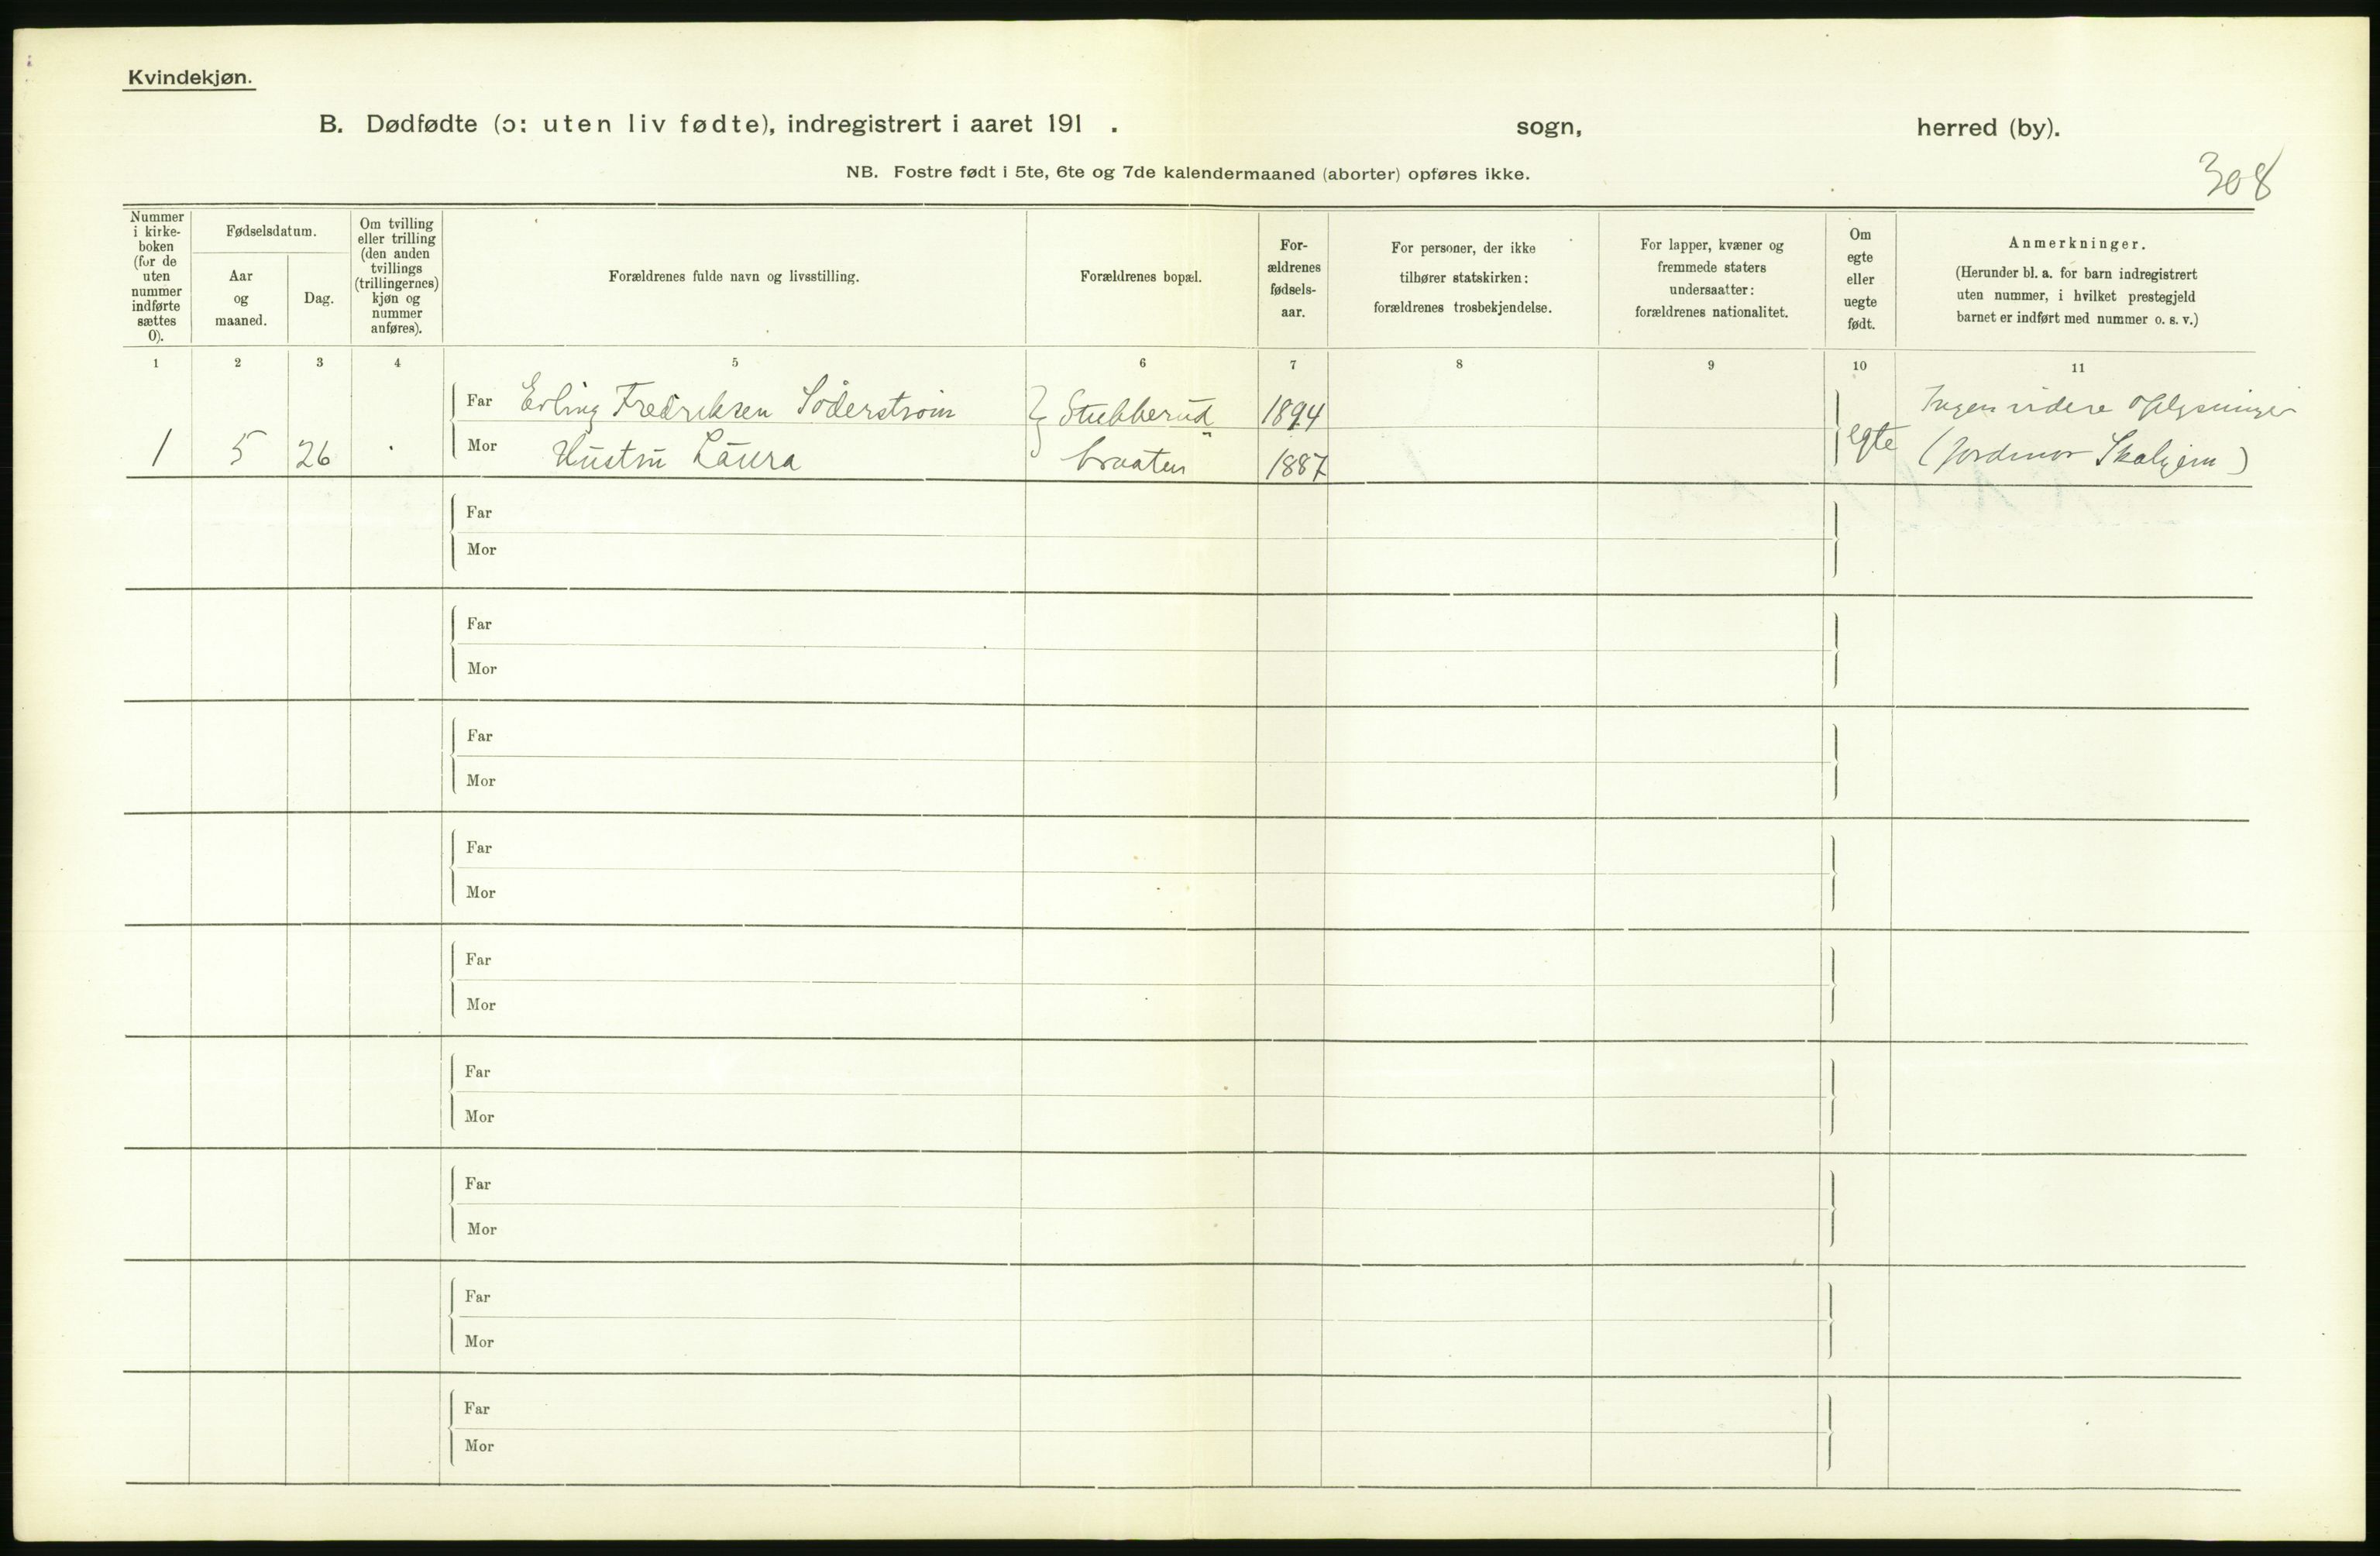 Kvindekjøn.
B. Dødfødte (ɔ: uten liv fødte), indregistrert i aaret 191 . sogn, herred (by).
NB. Fostre født i 5te, 6te og 7de kalendermaaned (aborter) opføres ikke.
308
Nummer
i kirke-
boken
(for de
uten
nummer
indførte
sættes
0).
Fødselsdatum.
Aar
og
maaned.
Dag.
Om tvilling
eller trilling
(den anden
tvillings
(trillingernes)
kjøn og
nummer
anføres).
Forældrenes fulde navn og livsstilling.
Forældrenes bopæl.
For-
ældrenes
fødsels-
aar.
For personer, der ikke
tilhører statskirken:
forældrenes trosbekjendelse.
For lapper, kvæner og
fremmede staters
undersaatter:
forældrenes nationalitet.
Om
egte
eller
uegte
født.
Anmerkninger.
(Herunder bl. a. for barn indregistrert
uten nummer, i hvilket prestegjeld
barnet er indført med nummer o. s. v.)
1 2 3 4 5 6 7 8 9 10 11
Far Erling Fredriksen Söderström Stubberud 1894 Ingen videre oplysninger
1 5 26 Mor Hustru Laura braaten 1887 egte (Jordmor Skolijem)
Far
Mor
Far
Mor
Far
Mor
Far
Mor
Far
Mor
Far
Mor
Far
Mor
Far
Mor
Far
Mor